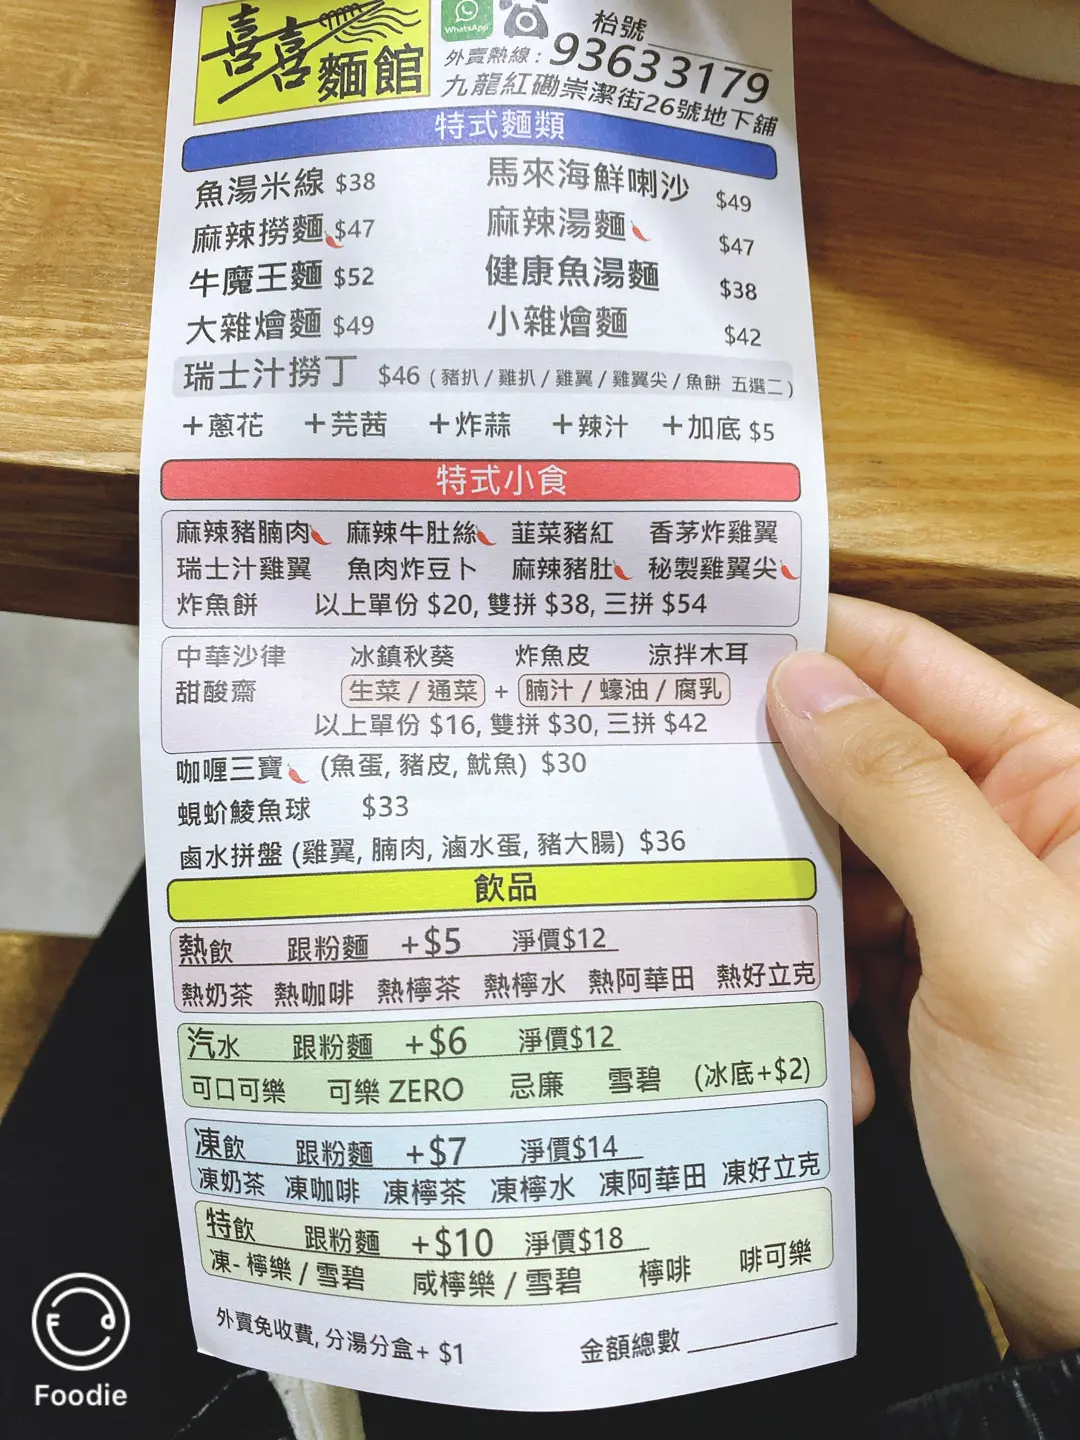 喜喜麵館
WhatsApp
枱號
外賣熱線：93633179
九龍紅磡崇潔街26號地下舖
特式麵類
魚湯米線 $38 馬來海鮮喇沙 $49
麻辣撈麵 $47 麻辣湯麵 $47
牛魔王麵 $52 健康魚湯麵 $38
大雜燴麵 $49 小雜燴麵 $42
瑞士汁撈丁 $46 (豬扒/雞扒/雞翼/雞翼尖/魚餅 五選二)
+蔥花 +芫茜 +炸蒜 +辣汁 +加底 $5
特式小食
麻辣豬腩肉 麻辣牛肚絲 韮菜豬紅 香茅炸雞翼
瑞士汁雞翼 魚肉炸豆卜 麻辣豬肚 秘製雞翼尖
炸魚餅 以上單份 $20, 雙拼 $38, 三拼 $54
中華沙律 冰鎮秋葵 炸魚皮 涼拌木耳
甜酸齋 生菜/通菜 + 腩汁/蠔油/腐乳
以上單份 $16, 雙拼 $30, 三拼 $42
咖喱三寶 (魚蛋, 豬皮, 魷魚) $30
蜆蚧鯪魚球 $33
鹵水拼盤 (雞翼, 腩肉, 滷水蛋, 豬大腸) $36
飲品
熱飲 跟粉麵 +$5 淨價$12
熱奶茶 熱咖啡 熱檸茶 熱檸水 熱阿華田 熱好立克
汽水 跟粉麵 +$6 淨價$12
可口可樂 可樂 ZERO 忌廉 雪碧 (冰底+$2)
凍飲 跟粉麵 +$7 淨價$14
凍奶茶 凍咖啡 凍檸茶 凍檸水 凍阿華田 凍好立克
特飲 跟粉麵 +$10 淨價$18
凍-檸樂/雪碧 咸檸樂/雪碧 檸啡 啡可樂
外賣免收費, 分湯分盒+ $1 金額總數
Foodie